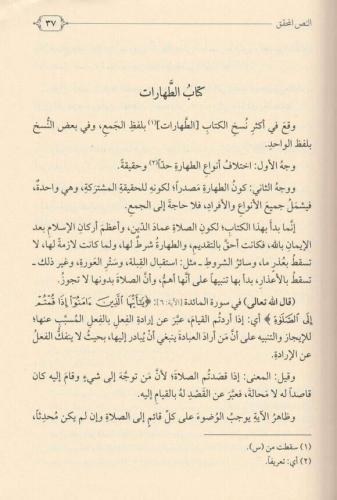 النص المحقق
٣٧
كتابُ الطَّهارات
وقعَ في أكثرِ نُسخِ الكتابِ [الطَّهارات](١) بلفظِ الجَمعِ، وفي بعض النُّسخِ
بلفظ الواحدِ.
وجهُ الأول: اختلافُ أنواعِ الطهارةِ حدّاً(٢) وحقيقةً.
ووجهُ الثاني: كونُ الطهارةِ مَصدراً؛ لكونِهِ للحقيقةِ المشتركةِ، وهي واحدةٌ،
فيشمَلُ جميعَ الأنواعِ والأفرادِ، فلا حاجةَ إلى الجمعِ.
إنَّما بدأ بهذا الكتابِ؛ لكونِ الصلاةِ عمادَ الدّين، وأعظمَ أركانِ الإسلامِ بعد
الإيمانِ بالله، فكانت أحقَّ بالتقديم، والطهارةُ شرطٌ لها، ولما كانت لازمةً لها، لا
تسقطُ بعُذرٍ ما، وسائرُ الشروطِ ـ مثل: استقبال القِبلة، وسَتْرِ العَورةِ، وغير ذلك ـ
تسقطُ بالأعذارِ، بدأ بها تنبيهاً على أنَّها أهمُّ، وأن الصلاةَ بدونها لا تجوزُ.
(قال اللهُ تعالى) في سورة المائدة [الآية: ٦]: ﴿يَـٰٓأَيُّهَا ٱلَّذِينَ ءَامَنُوٓا۟ إِذَا قُمْتُمْ
إِلَى ٱلصَّلَوٰةِ﴾ أي: إذا أردتُم القيامَ، عبَّرَ عن إرادةِ الفعلِ بالفعلِ المُسبَّبِ عنها؛
للإيجازِ والتنبيه على أن مَن أرادَ العبادةَ ينبغي أنْ يُبادر إليها، بحيثُ لا ينفكُّ الفعلُ
عن الإرادةِ.
وقيل: المعنى: إذا قصَدتُم الصلاةَ؛ لأنَّ مَن توجَّهَ إلى شيءٍ وقامَ إليه كان
قاصداً له لا مَحالةَ، فعبَّرَ عن القَصْدِ لهُ بالقيامِ إليه.
وظاهرُ الآيةِ يوجبُ الوُضوءَ على كلِّ قائمٍ إلى الصلاةِ وإن لم يكن مُحدِثاً،
(١) سقطت من (س).
(٢) أي: تعريفاً.